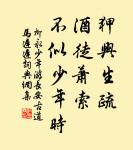 狎興生疏
酒徒蕭索
不似少年時
柳永少年游長安古道
馬遲遲詞典網集